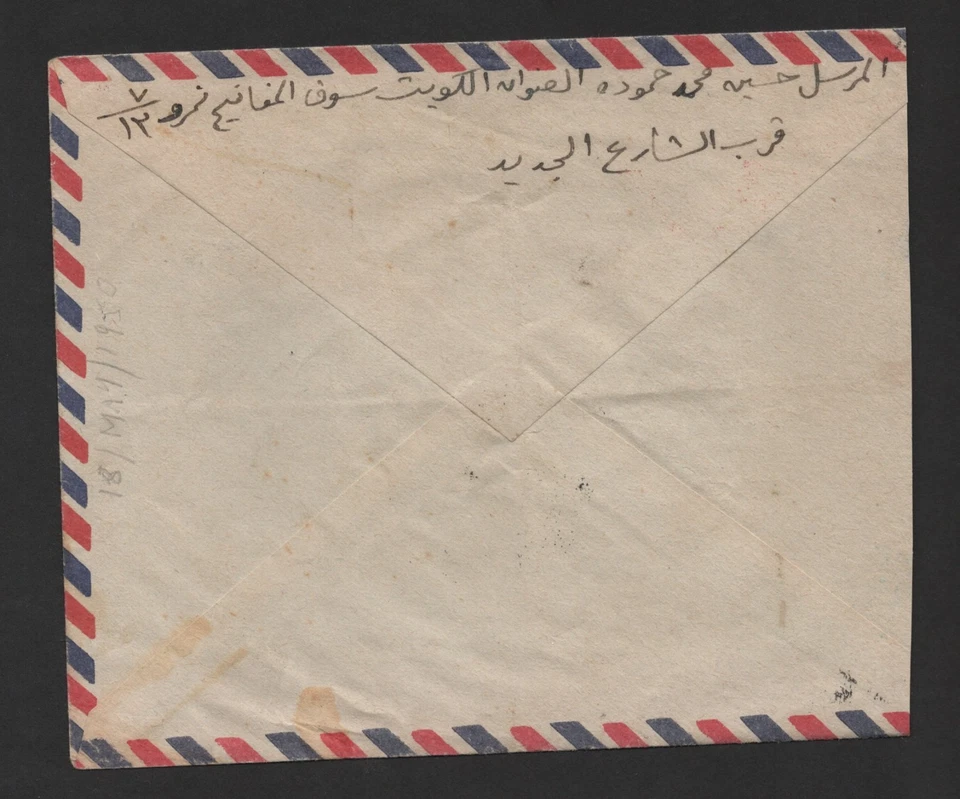 المرسل حسين محمد حموده العنوان الكويت سوق المفاتيح نمرو ٧/١٣
قرب الشارع الجديد
18/MAY/1950